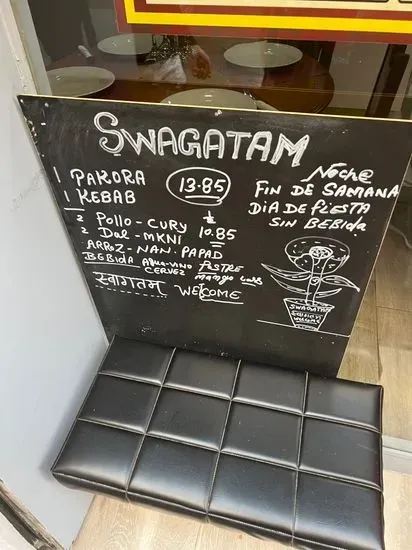 SWAGATAM
1 PAKORA
1 KEBAB
13.85
2 Pollo-CURY
2 Dal-MKNI
10.85
ARROZ-NAN.PAPAD
BEBIDA AGUA-VINO POSTRE
CERVEZ mango
स्वागतम WELCOME
Noche
FIN DE SAMANA
DIA DE FIESTA
SIN BEBIDA
SWAGATAM
WELCOME